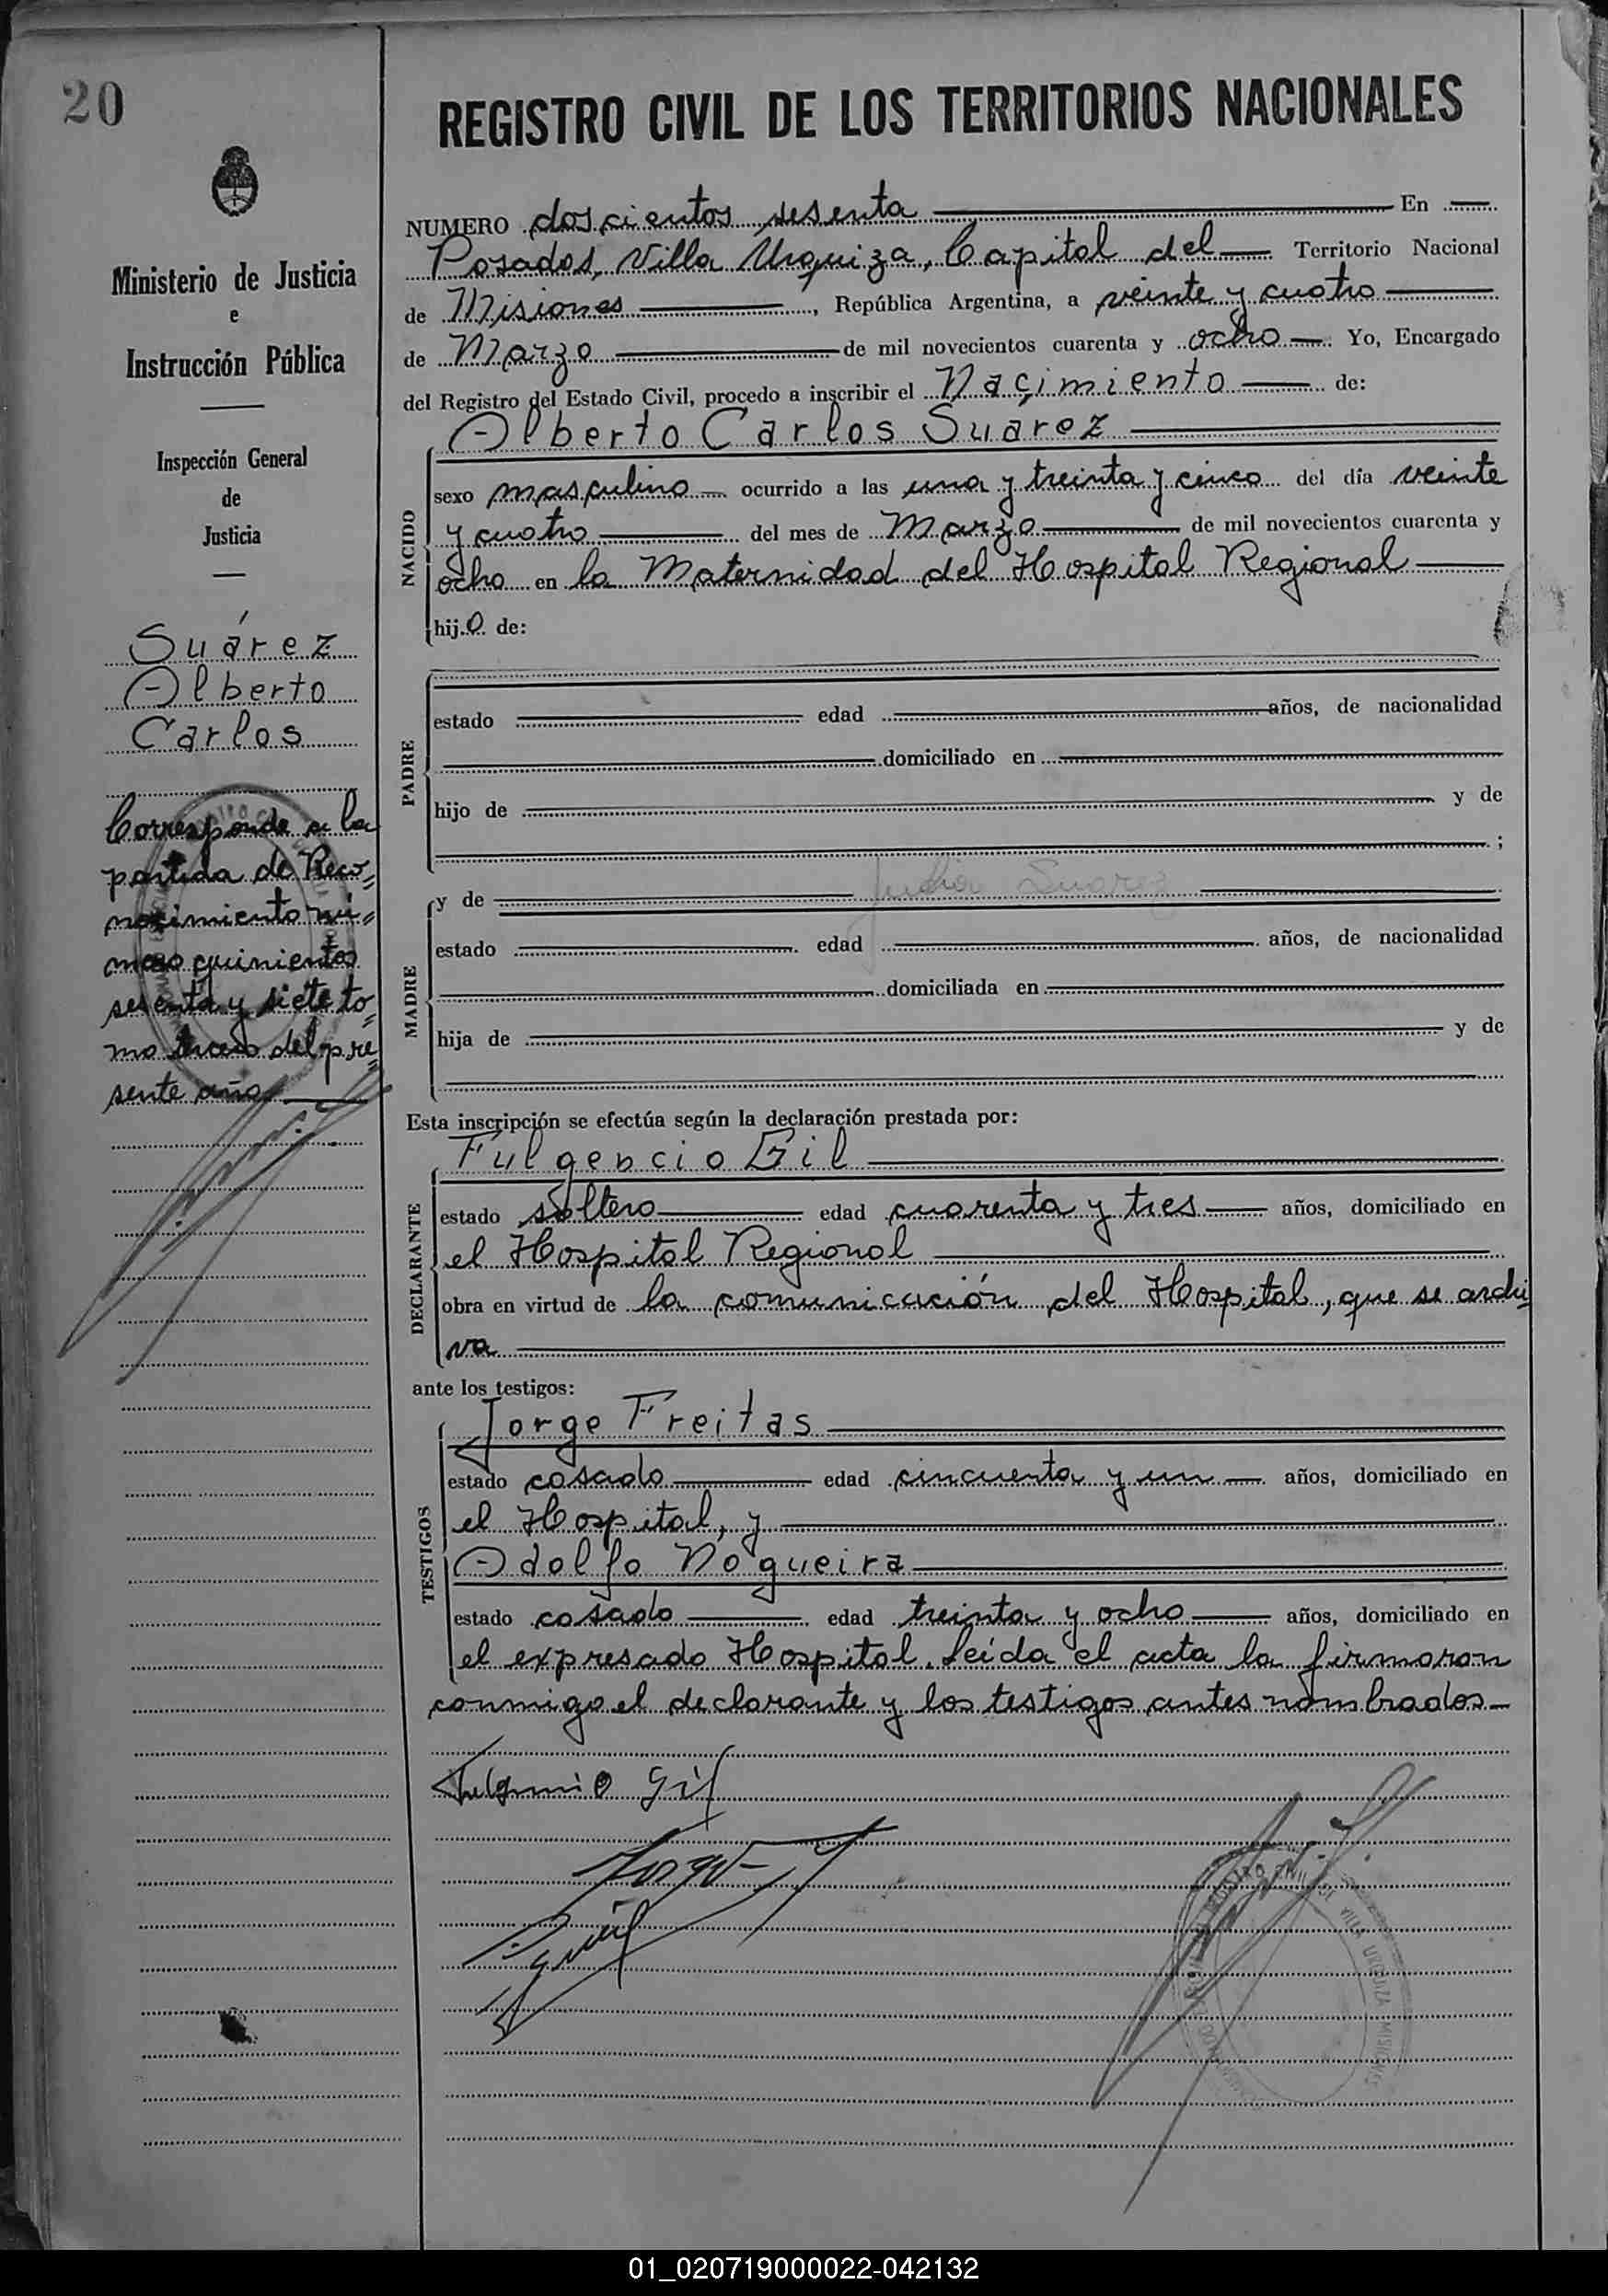 20
REGISTRO CIVIL DE LOS TERRITORIOS NACIONALES
Ministerio de Justicia
e
Instrucción Pública
Inspección General
de
Justicia
Suárez
Alberto
Carlos
Corresponde a la
partida de Reco=
nocimiento nú=
mero quinientos
sesenta y siete to=
mo tercero del pre=
sente año
NUMERO doscientos sesenta En
Posadas, Villa Urquiza, Capital del Territorio Nacional
de Misiones, República Argentina, a veinte y cuatro
de Marzo de mil novecientos cuarenta y ocho. Yo, Encargado
del Registro del Estado Civil, procedo a inscribir el Nacimiento de:
Alberto Carlos Suárez
NACIDO
sexo masculino ocurrido a las una y treinta y cinco del día veinte
y cuatro del mes de Marzo de mil novecientos cuarenta y
ocho en la Maternidad del Hospital Regional
hijo de:
PADRE
estado edad años, de nacionalidad
domiciliado en
hijo de y de
;
y de Suarez
MADRE
estado edad años, de nacionalidad
domiciliada en
hija de y de
Esta inscripción se efectúa según la declaración prestada por:
Fulgencio Gil
DECLARANTE
estado soltero edad cuarenta y tres años, domiciliado en
el Hospital Regional
obra en virtud de la comunicación del Hospital, que se archi
va
ante los testigos:
Jorge Freitas
TESTIGOS
estado casado edad cincuenta y un años, domiciliado en
el Hospital, y
Adolfo Nogueira
estado casado edad treinta y ocho años, domiciliado en
el expresado Hospital. Leída el acta la firmaron
conmigo el declarante y los testigos antes nombrados
Fulgencio Gil
VILLA URQUIZA MISIONES
01_020719000022-042132